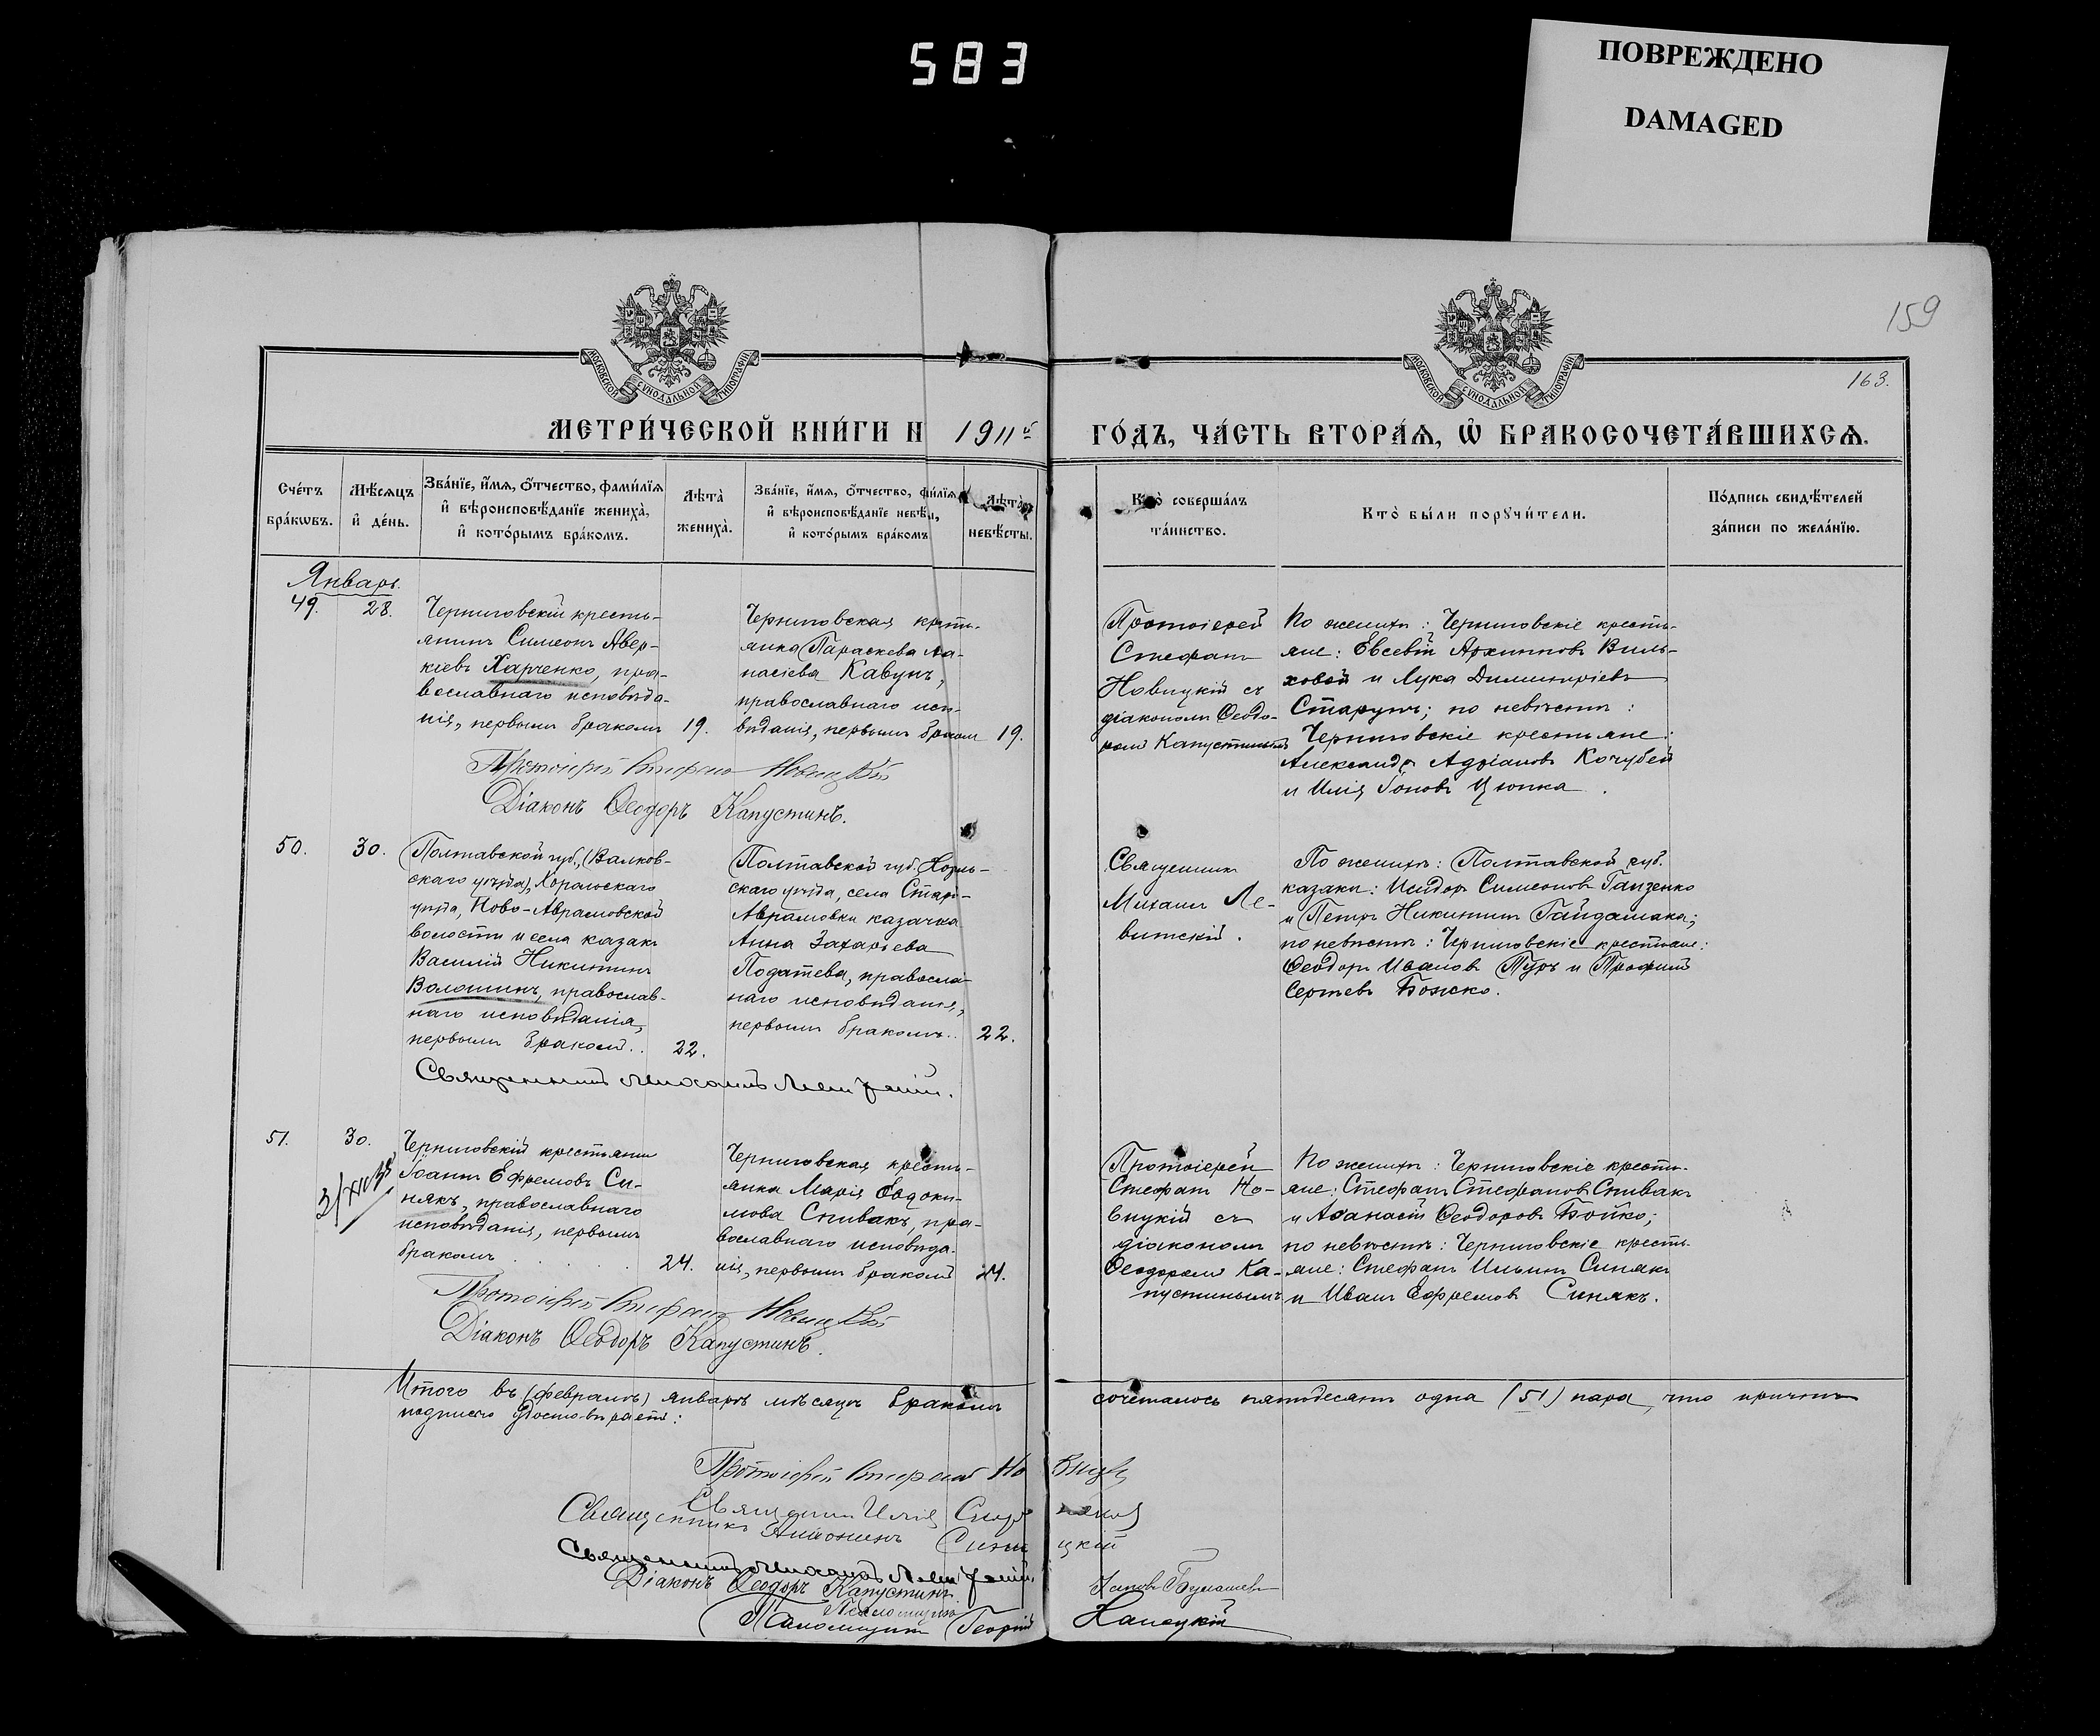 583
ПОВРЕЖДЕНО
DAMAGED
159
163.
МОСКОВСКОЙ СѴНОДАЛЬНОЙ ТИПОГРАФІИ
МОСКОВСКОЙ СѴНОДАЛЬНОЙ ТИПОГРАФІИ
МЕТРИ́ЧЕСКОЙ КНИ́ГИ Н 1911й
ГО́ДЪ, ЧА́СТЬ ВТОРА́Ѧ, Ѡ҆ БРАКОСОЧЕТА́ВШИХСѦ.
Сче́тъ
бра́кѡвъ.
Мѣ́сѧцъ
и҆ де́нь.
Зва́нїе, и҆́мѧ, ѻ҆́тчество, фами́лїѧ
и҆ вѣроисповѣ́данїе жениха̀,
и҆ кото́рымъ бра́комъ.
Лѣта̀
жениха̀.
Зва́нїе, и҆́мѧ, ѻ҆́тчество,
и҆ вѣроисповѣ́данїе
и҆ кото́рымъ бра́комъ
Лѣта̀
невѣ́сты.
Кто̀ соверша́лъ
та́инство.
Кто̀ бы́ли порꙋчи́тели.
По́дпись свидѣ́телей
за́писи по жела́нїю.
Январь.
49.
28.
Черниговскій кресть-
янинъ Симеонъ Авер-
кіевъ Харченко, пра-
вославнаго исповѣда-
нія, первымъ бракомъ
19.
Черниговская крсть-
янка Параскева Аѳа-
насіева Кавунъ,
православнаго испо-
вѣданія, первымъ браком
19.
Протоіерей
Стефанъ
Новицкій съ
діакономъ Ѳеодо-
ромъ Капустинымъ
По женихѣ: Черниговскіе кресть-
яне: Евсевій Архиповъ Виль-
ховой и Лука Димитріевъ
Старунъ; по невѣстѣ:
Черниговскіе крестьяне:
Александръ Адріановъ Кочубей
и Илія Іоновъ Цюпка.
Протоіерей Стефанъ Новицкій
Діаконъ Ѳеодоръ Капустинъ.
50.
30.
Полтавской губ., (Валков-
скаго уѣзда), Хорольскаго
уѣзда, Ново-Аврамовской
волости и села казакъ
Василій Никитинъ
Волошинъ, православ-
наго исповѣданія,
первымъ бракомъ..
22.
Полтавской губ. Хороль-
скаго уѣзда, села Старо-
Аврамовки казачка
Анна Захарьева
Податева, правосла-
наго исповѣданія,
первымъ бракомъ..
22.
Священникъ
Михаилъ Ле-
витскій.
По женихѣ: Полтавской губ.
казаки: Исидоръ Симеоновъ Ганзенко
и Петръ Никитинъ Гайдамака;
по невѣстѣ: Черниговскіе крестьяне:
Ѳеодоръ Ивановъ Туръ и Трофимъ
Сергѣевъ Божко.
Священникъ Михаилъ Левитскій.
51.
30.
Черниговскій крестьянинъ
Іоаннъ Ефремовъ Си-
някъ, православнаго
исповѣданія, первымъ
бракомъ . . . . . .
24.
Черниговская кресть-
янка Марія Евдоки-
мова Спивакъ, пра-
вославнаго исповѣда-
нія, первымъ бракомъ
24.
Протоіерей
Стефанъ Но-
вицкій съ
діакономъ
Ѳеодоромъ Ка-
пустинымъ
По женихѣ: Черниговскіе кресть-
яне: Стефанъ Стефановъ Спивакъ
и Аѳанасій Ѳеодоровъ Бойко;
по невѣстѣ: Черниговскіе кресть-
яне: Стефанъ Ильинъ Синякъ
и Иванъ Ефремовъ Синякъ.
Протоіерей Стефанъ Новицкій
Діаконъ Ѳеодоръ Капустинъ.
Итого въ (февралѣ) январѣ мѣсяцѣ бракомъ сочеталось пятьдесятъ одна (51) пара, что причтъ
подписью удостовѣряетъ:
Протоіерей Стефанъ Новицкій
Священникъ Илія
Священникъ
Священникъ Михаилъ Левитскій.
Діаконъ Ѳеодоръ Капустинъ.
Псаломщикъ
Псаломщикъ Георгій